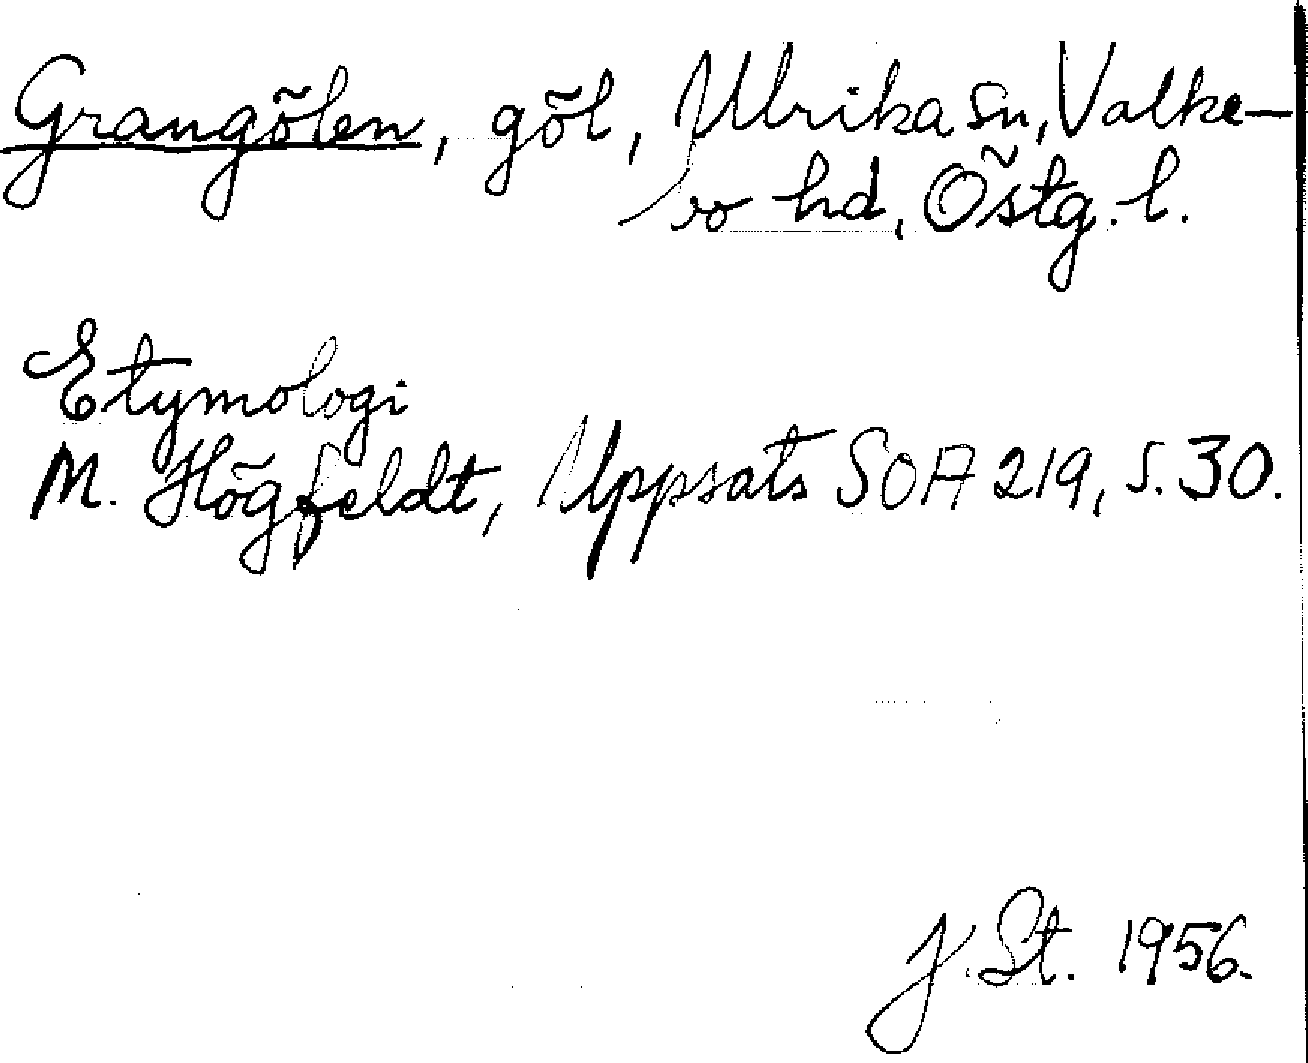 Grangölen, göl, Ulrika sn, Valke-
bo hd, Östg. l.
Etymologi
M. Högfeldt, Uppsats SOA 219, s. 30.
J. St. 1956.